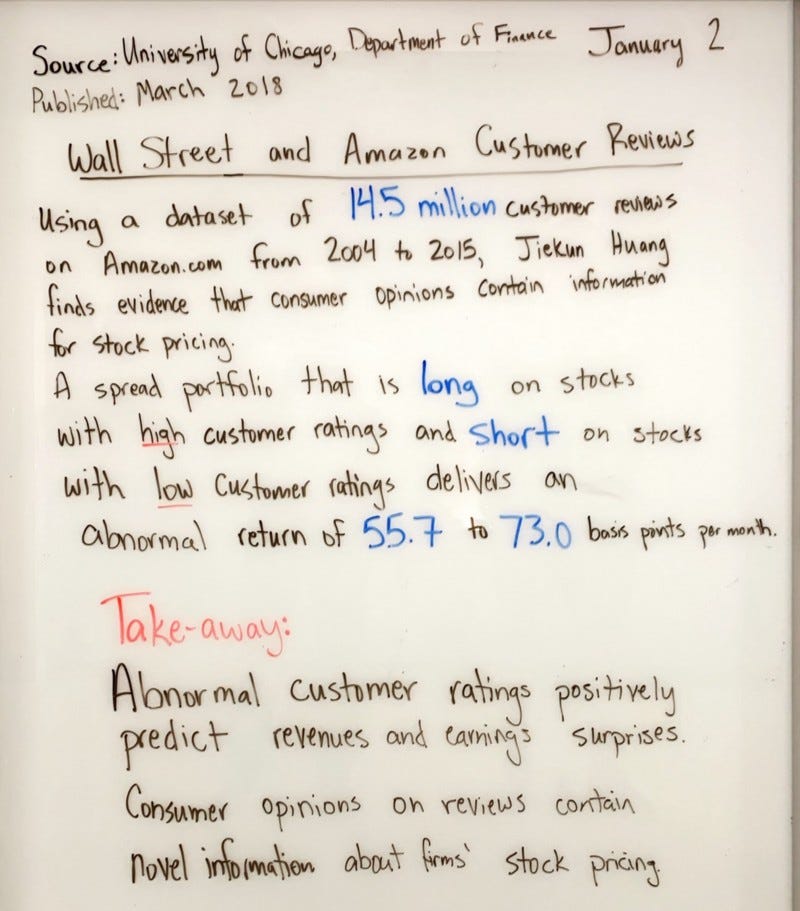 Source: University of Chicago, Department of Finance January 2
Published: March 2018
Wall Street and Amazon Customer Reviews
Using a dataset of 14.5 million customer reviews
on Amazon.com from 2004 to 2015, Jiekun Huang
finds evidence that consumer opinions contain information
for stock pricing.
A spread portfolio that is long on stocks
with high customer ratings and short on stocks
with low customer ratings delivers an
abnormal return of 55.7 to 73.0 basis points per month.
Take-away:
Abnormal customer ratings positively
predict revenues and earnings surprises.
Consumer opinions on reviews contain
novel information about firms' stock pricing.